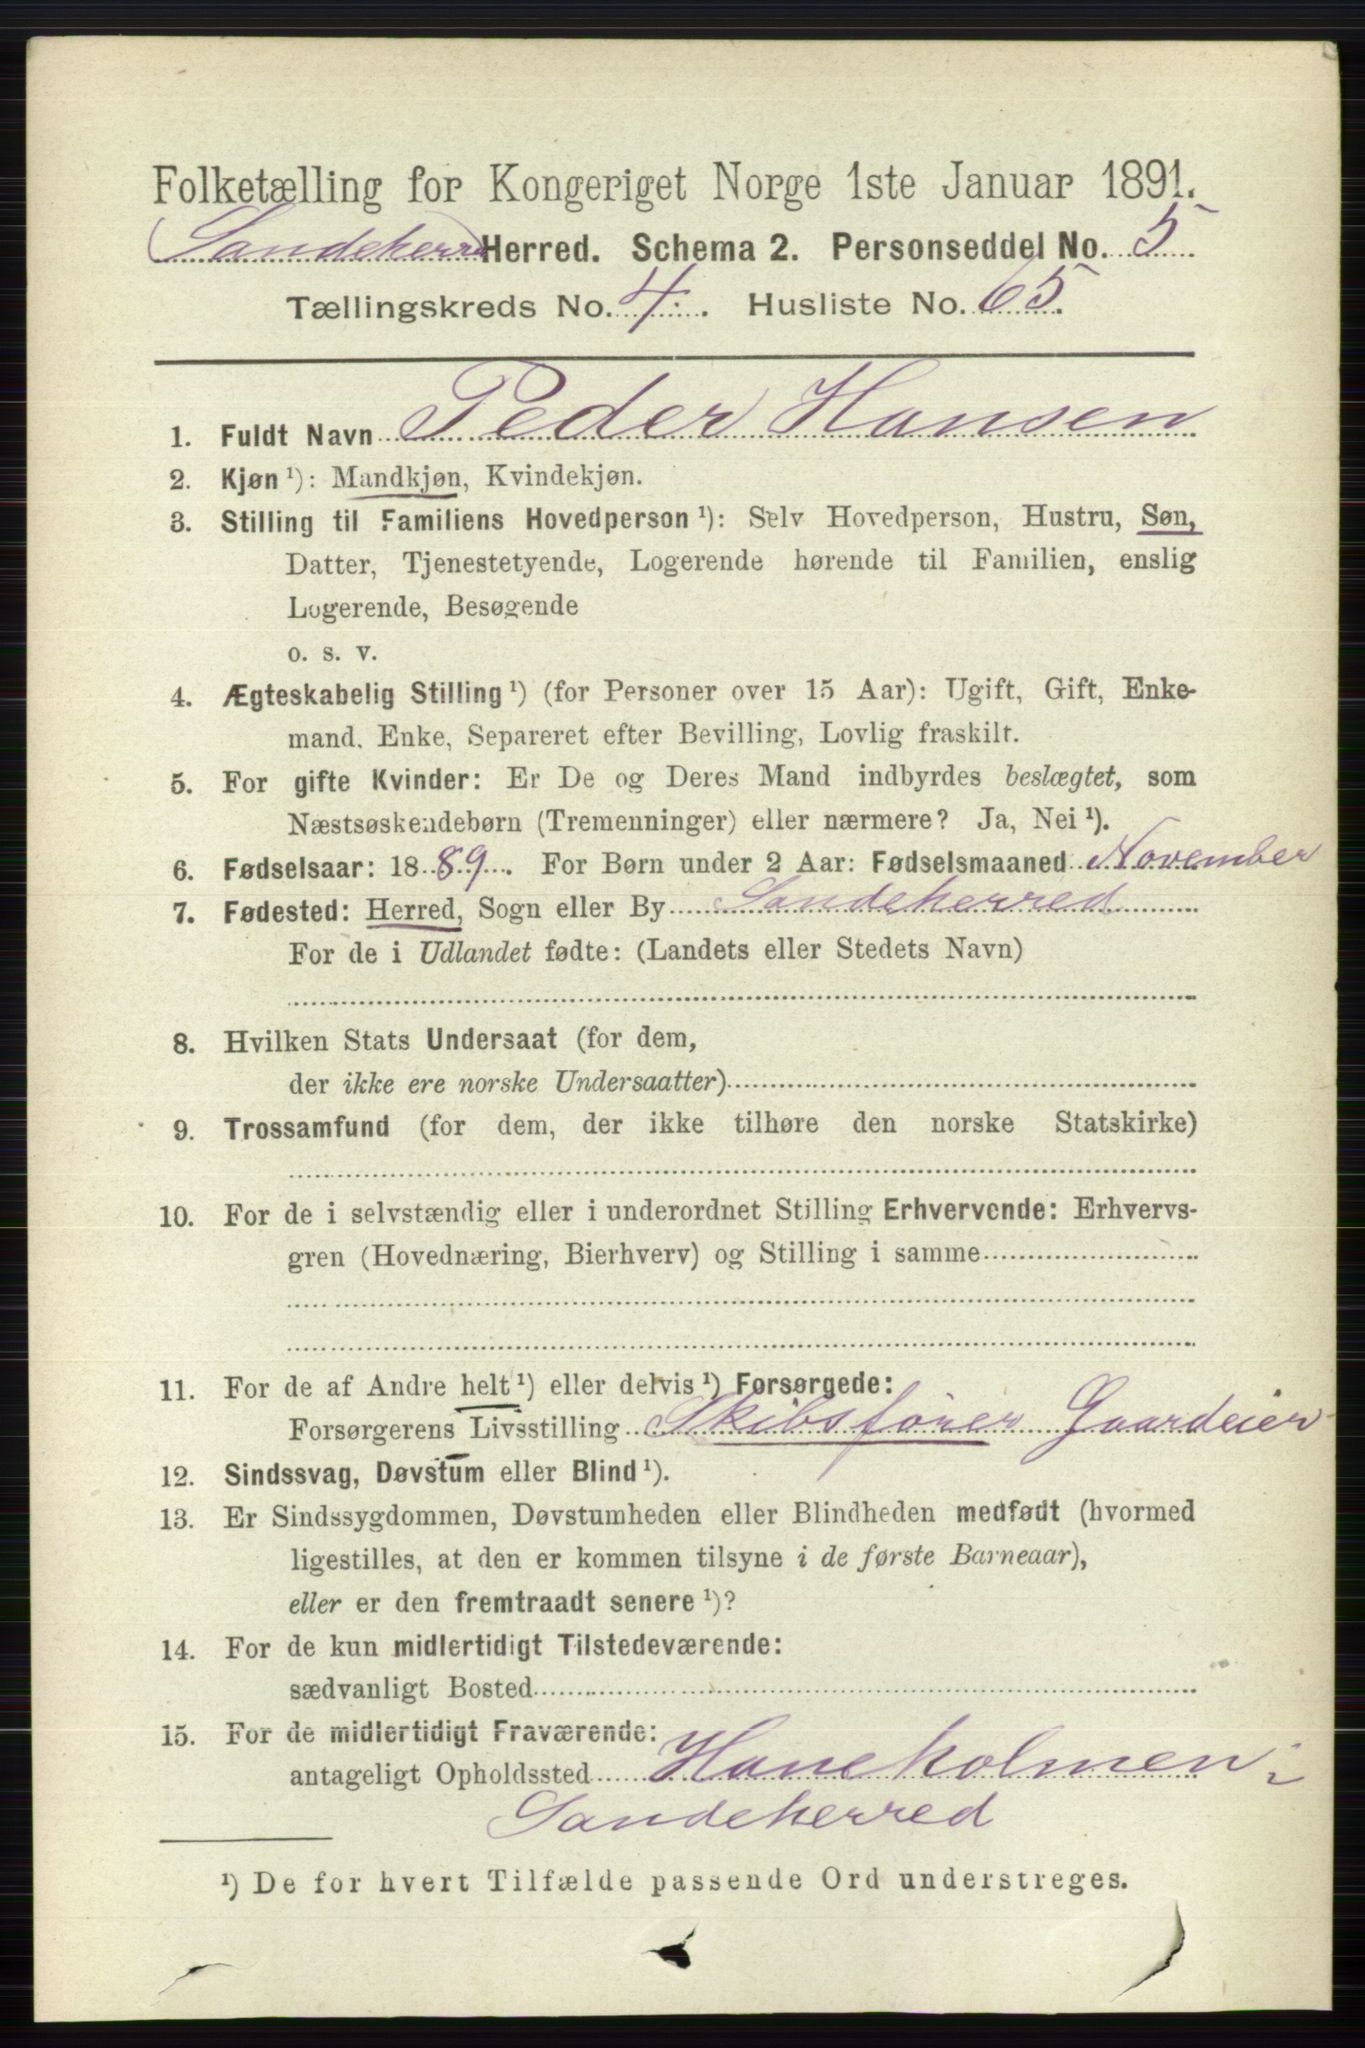 Folketælling for Kongeriget Norge 1ste Januar 1891.
Sandeherred Herred. Schema 2. Personseddel No. 5
Tællingskreds No. 4. Husliste No. 65.
1. Fuldt Navn Peder Hansen
2. Kjøn ¹): Mandkjøn, Kvindekjøn.
3. Stilling til Familiens Hovedperson ¹): Selv Hovedperson, Hustru, Søn,
Datter, Tjenestetyende, Logerende hørende til Familien, enslig
Logerende, Besøgende
o. s. v.
4. Ægteskabelig Stilling ¹) (for Personer over 15 Aar): Ugift, Gift, Enke-
mand, Enke, Separeret efter Bevilling, Lovlig fraskilt.
5. For gifte Kvinder: Er De og Deres Mand indbyrdes beslægtet, som
Næstsøskendebørn (Tremenninger) eller nærmere? Ja, Nei ¹).
6. Fødselsaar: 1889. For Børn under 2 Aar: Fødselsmaaned November
7. Fødested: Herred, Sogn eller By Sandeherred
For de i Udlandet fødte: (Landets eller Stedets Navn)
8. Hvilken Stats Undersaat (for dem,
der ikke ere norske Undersaatter)
9. Trossamfund (for dem, der ikke tilhøre den norske Statskirke)
10. For de i selvstændig eller i underordnet Stilling Erhvervende: Erhvervs-
gren (Hovednæring, Bierhverv) og Stilling i samme
11. For de af Andre helt ¹) eller delvis ¹) Forsørgede:
Forsørgerens Livsstilling Skibsfører Gaardeier
12. Sindssvag, Døvstum eller Blind ¹).
13. Er Sindssygdommen, Døvstumheden eller Blindheden medfødt (hvormed
ligestilles, at den er kommen tilsyne i de første Barneaar),
eller er den fremtraadt senere ¹)?
14. For de kun midlertidigt Tilstedeværende:
sædvanligt Bosted
15. For de midlertidigt Fraværende:
antageligt Opholdssted Haneholmen i
Sandeherred
¹) De for hvert Tilfælde passende Ord understreges.